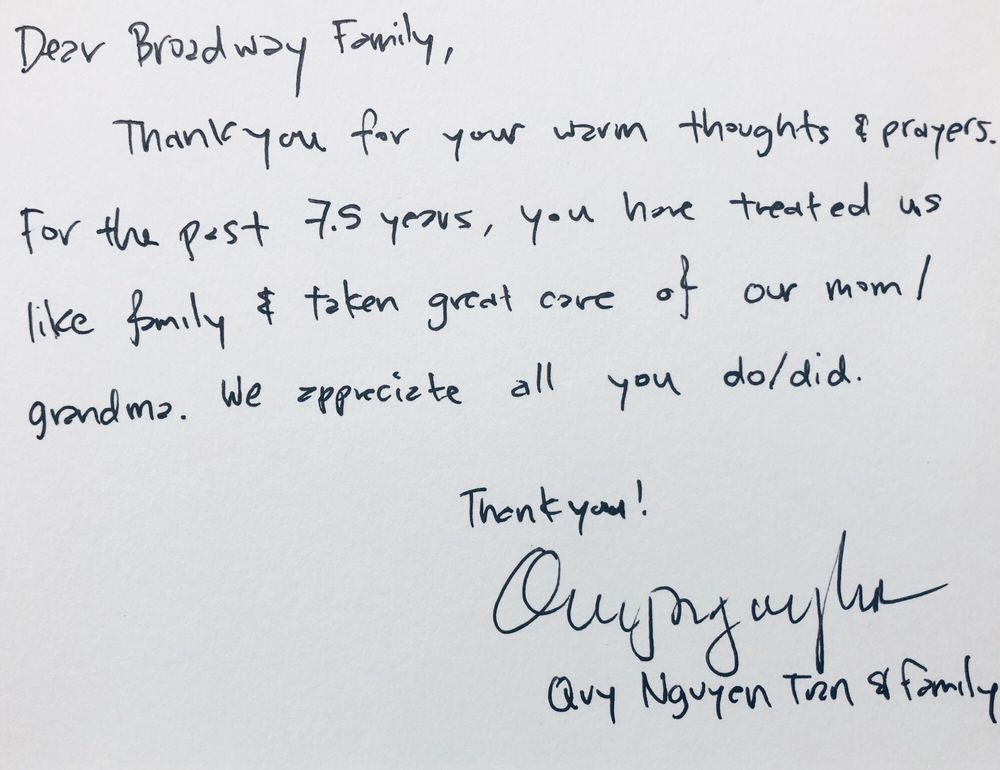 Dear Broadway Family,
Thank you for your warm thoughts & prayers.
For the past 7.5 years, you have treated us
like family & taken great care of our mom/
grandma. We appreciate all you do/did.
Thank you!
Quy Nguyen Tran & family